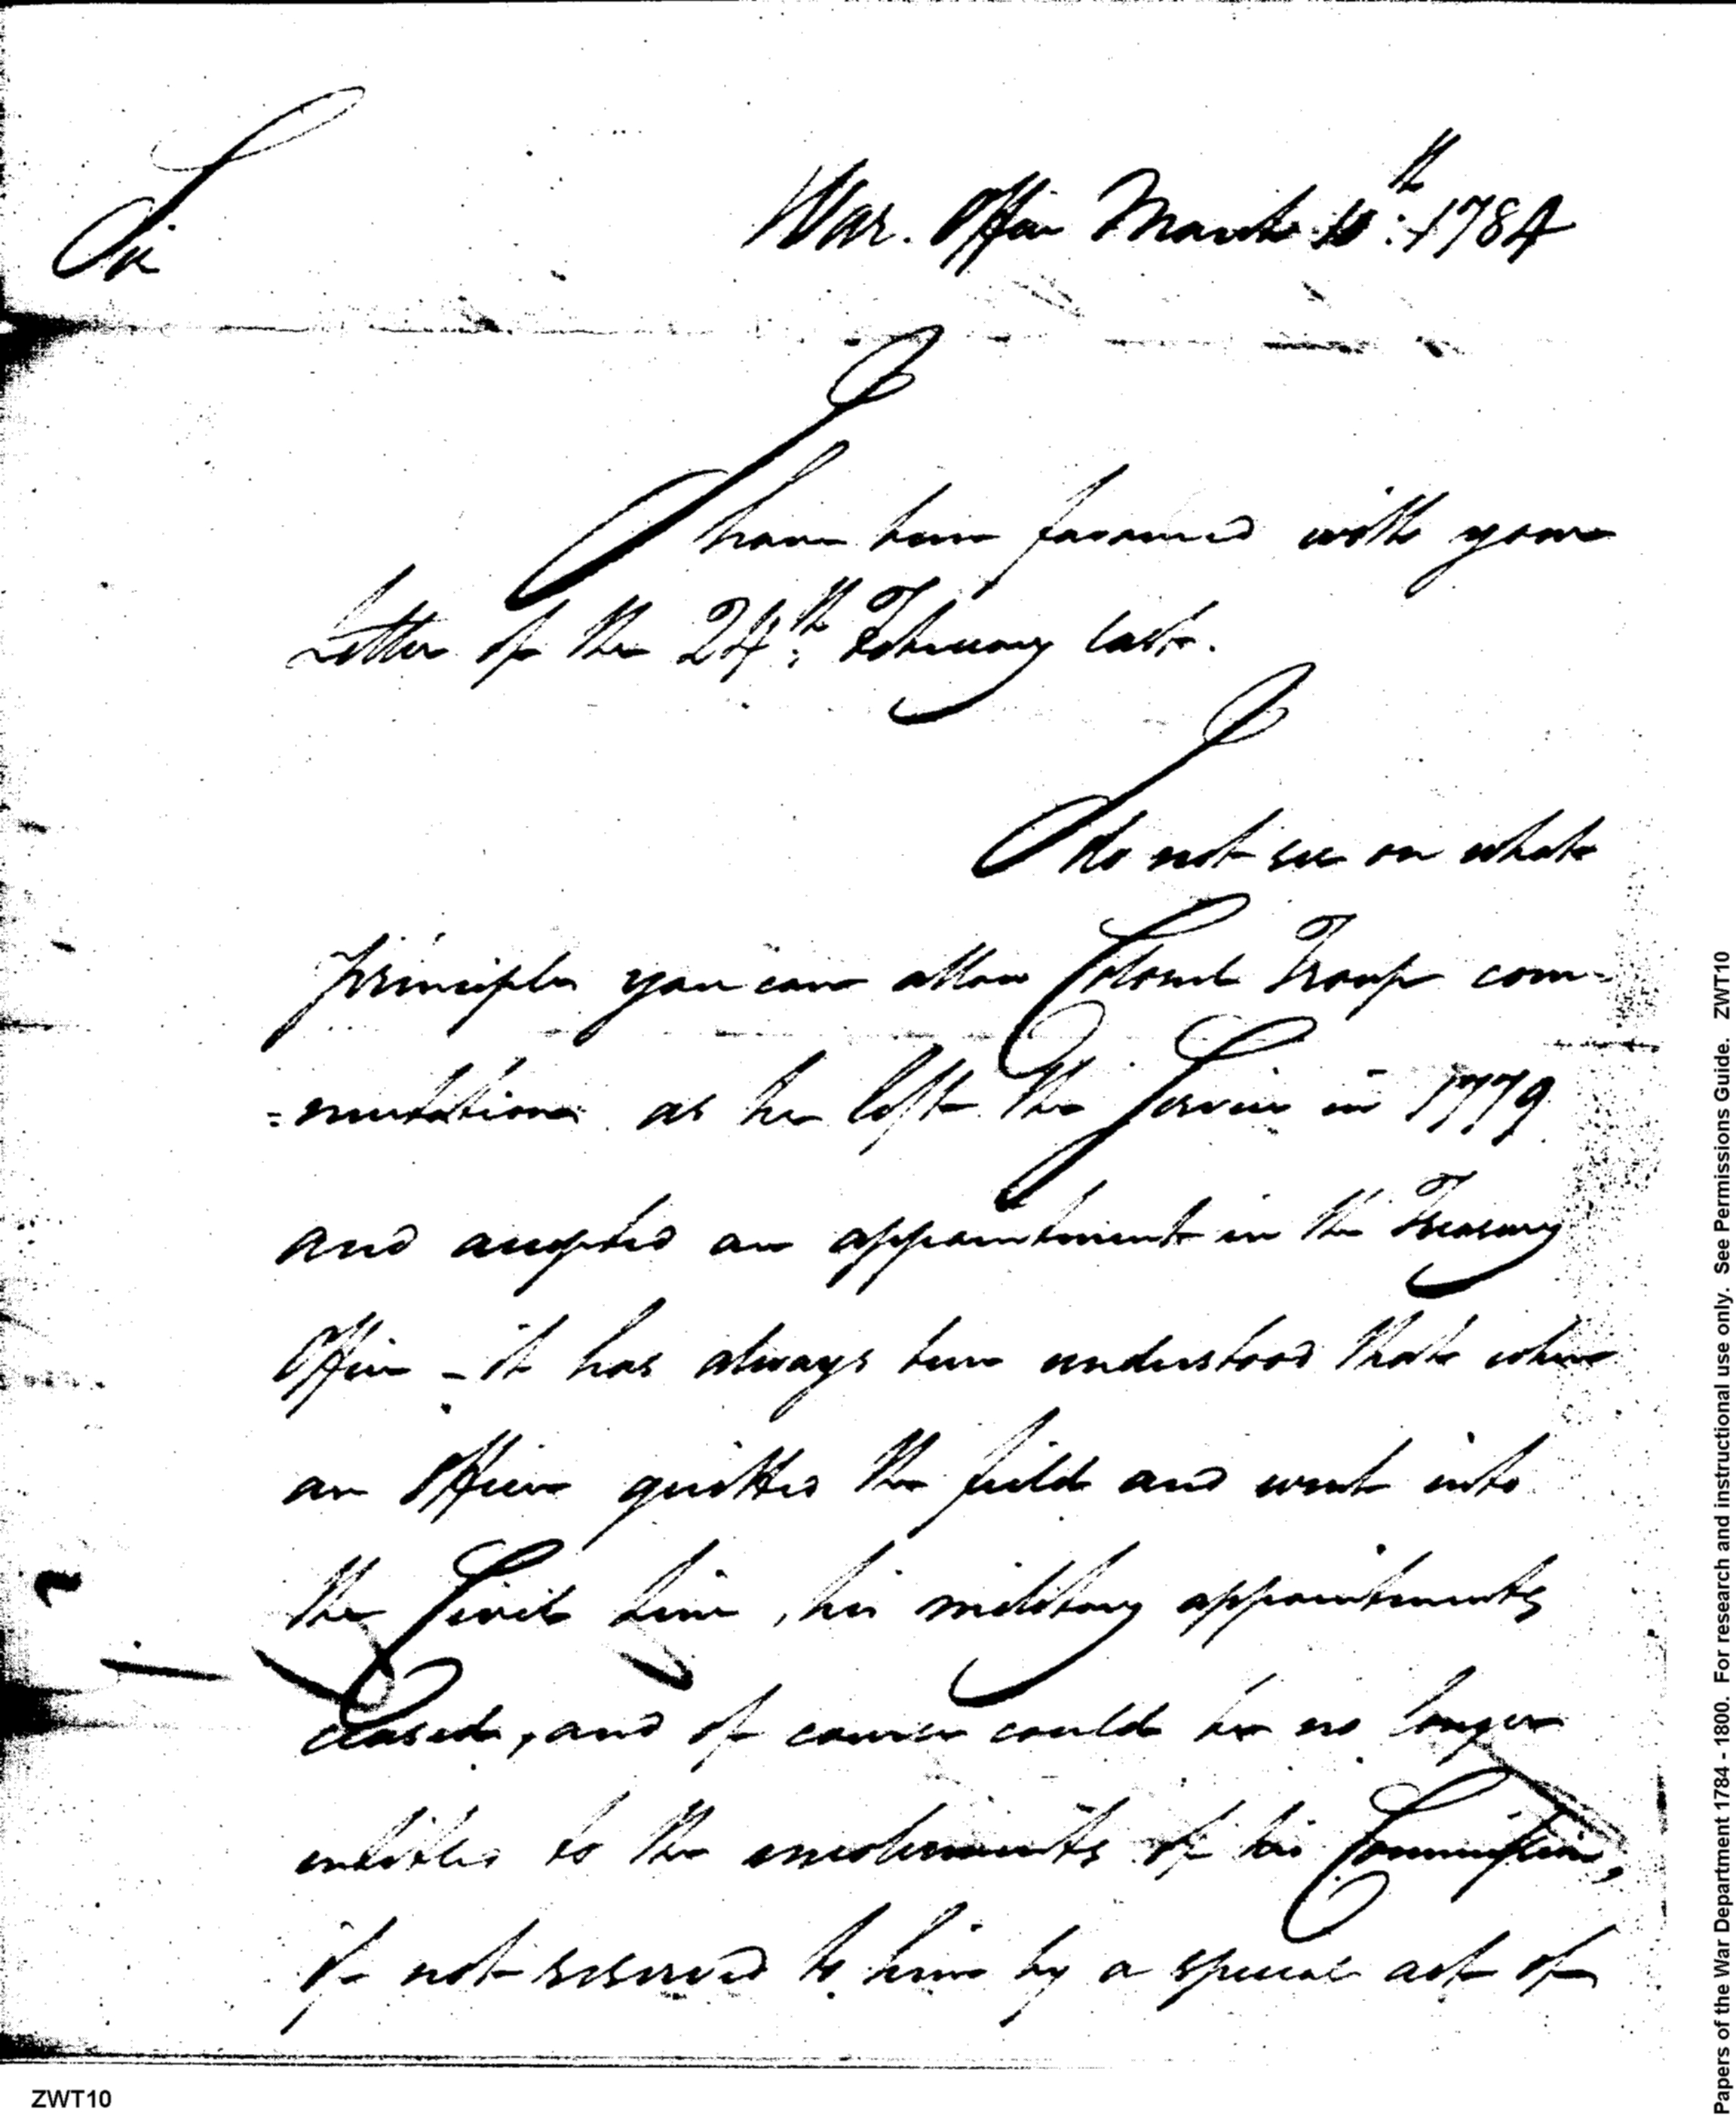 Sir
War. Office March 10th: 1784
I have been favoured with your
Letter of the 24th: February last.
I do not see on what
principles you can allow Colonel Troup com=
=mutation as he left the Service in 1779
and accepted an appointment in the Treasury
Office - it has always been understood that when
an Officer quitted the field and went into
the Civil line, his military appointments
ceased, and of course could be no longer
entitled to the emoluments of his Commission,
if not reserved to him by a special act of
ZWT10
Papers of the War Department 1784 - 1800. For research and instructional use only. See Permissions Guide. ZWT10